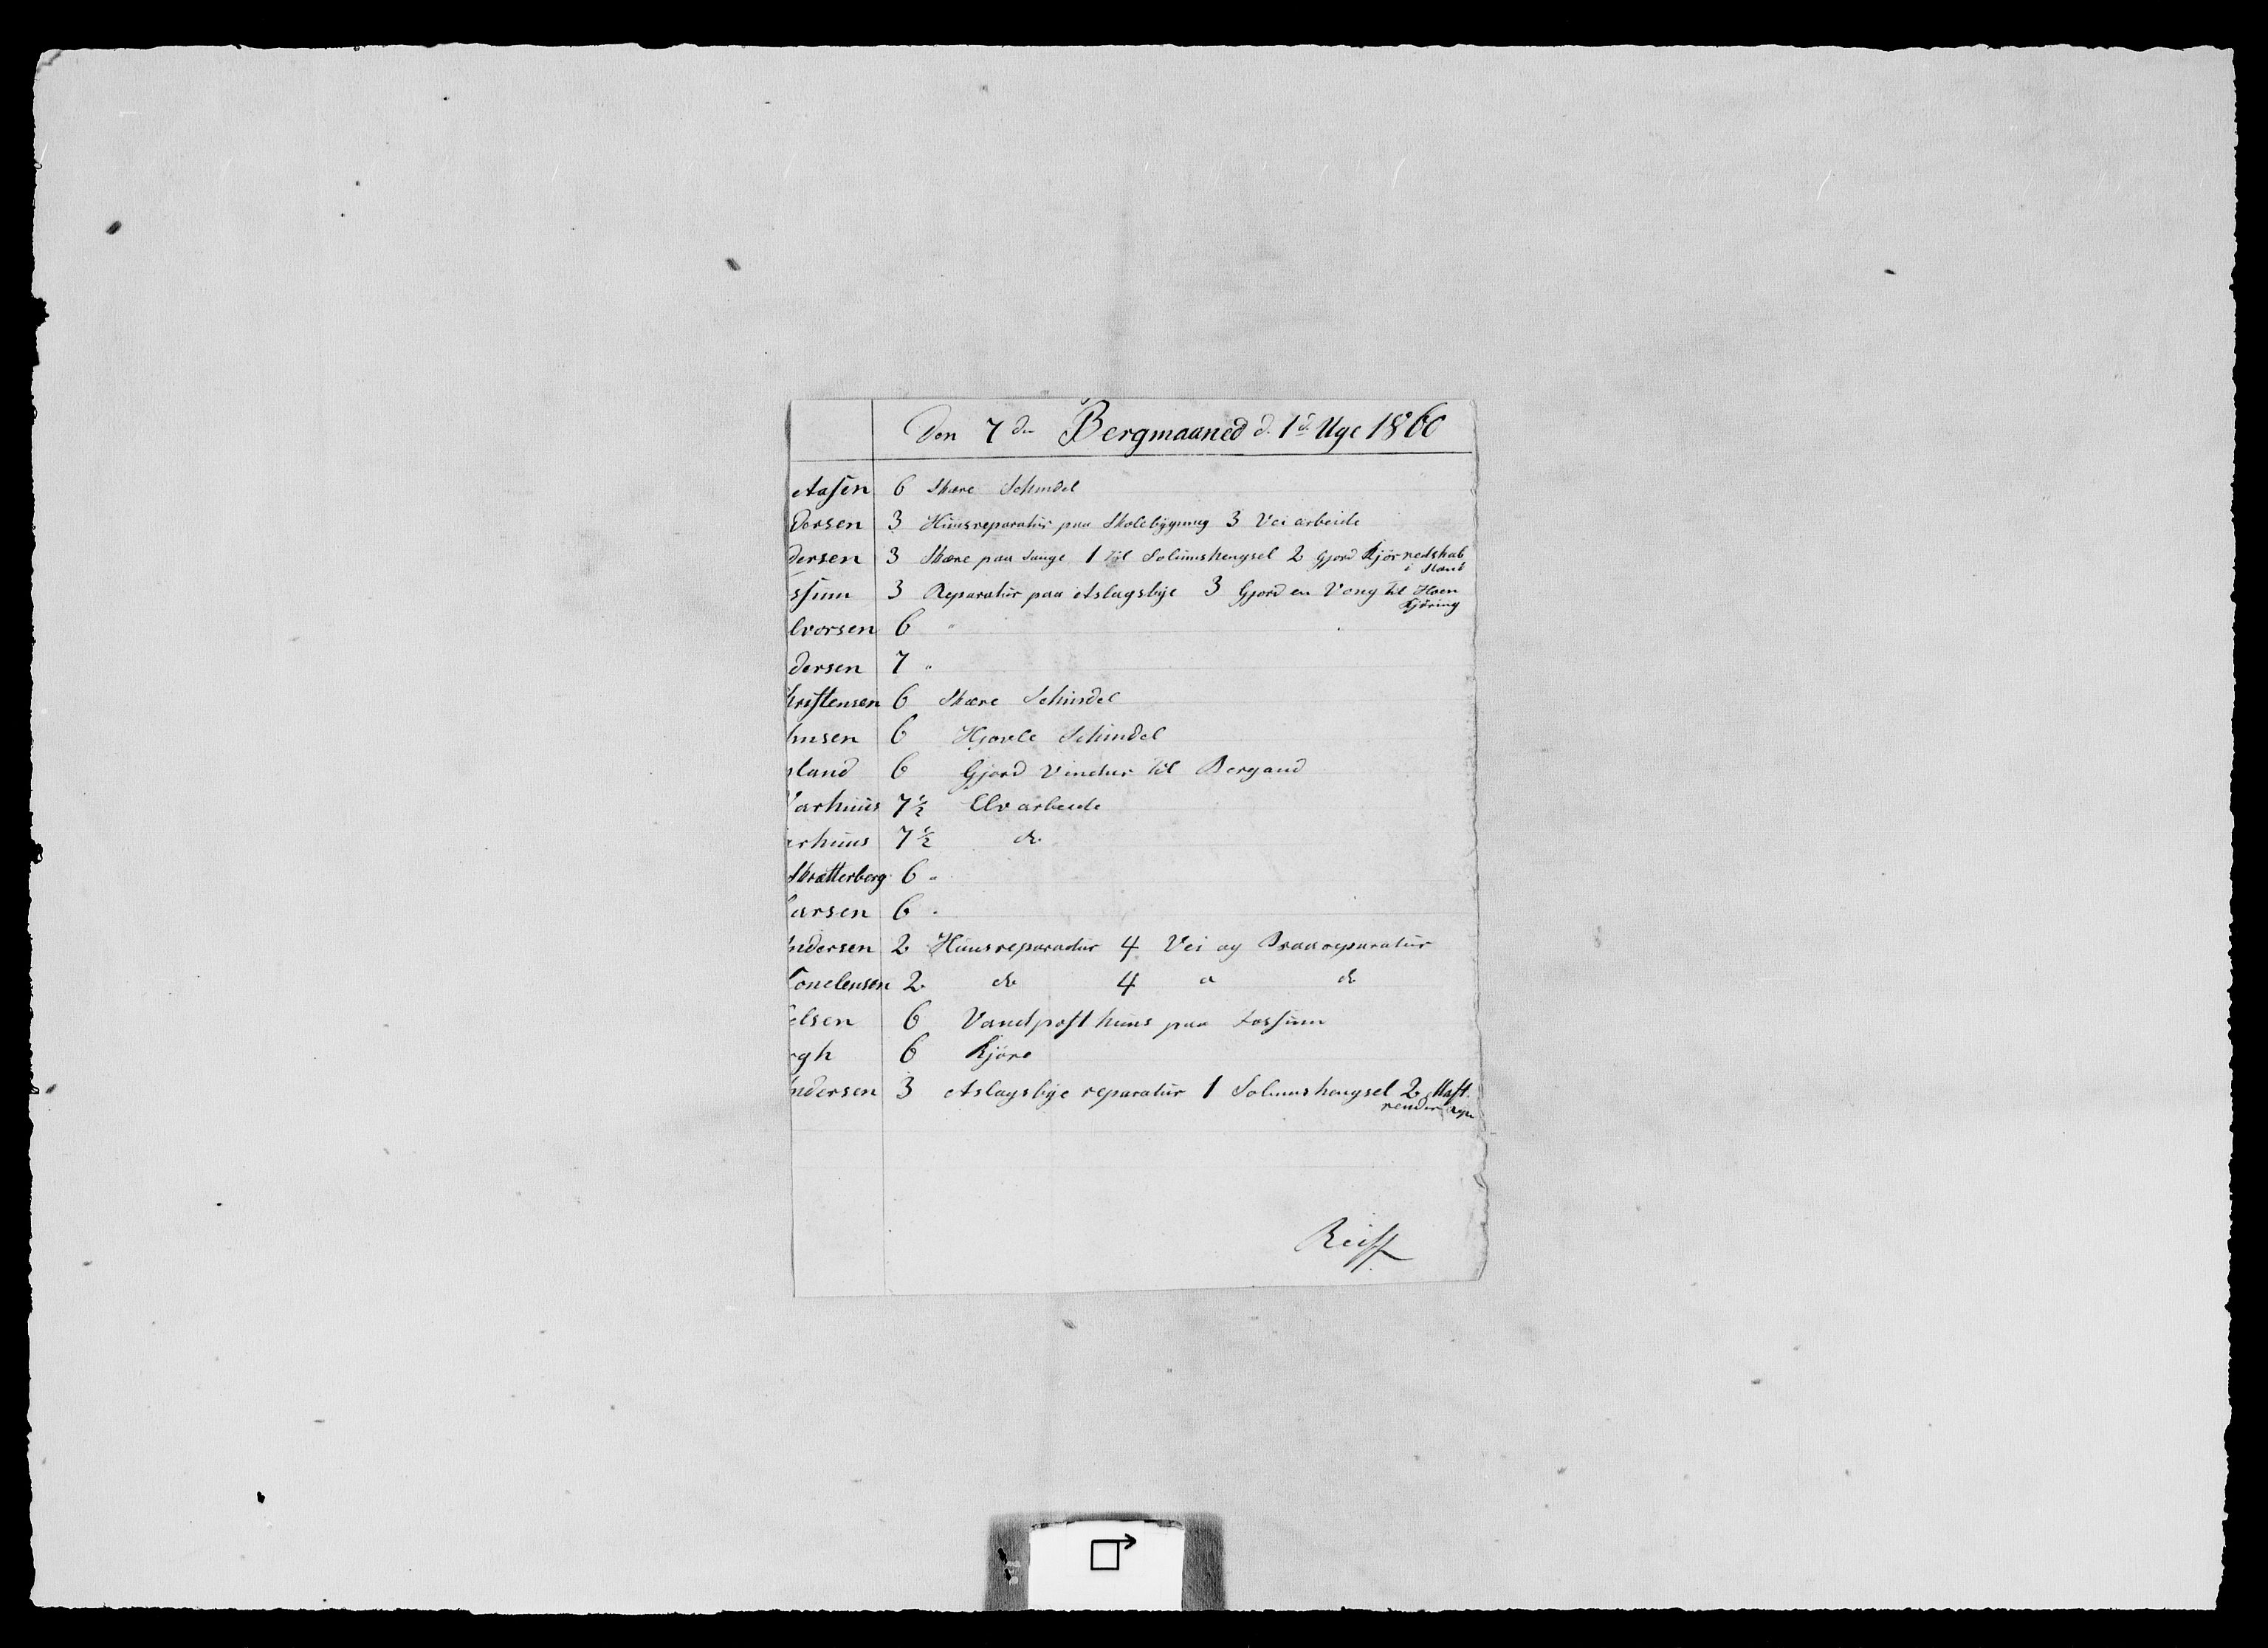 Den 7de Bergmaaned d. 1ste Uge 1860
Aasen 6 Skære Schindel
dersen 3 Huusreparatur paa Skolebygning 3 Vei arbeide
dersen 3 Skære paa Sauge 1 til Solumshengsel 2 Gjord Kjörredskab
i Stand
ssum 3 Reparatur paa Aslagsbye 3 Gjord en Vang til
Kjöring
lvorsen 6 "
dersen 7 "
hristensen 6 Skære Schindel
ansen 6 Hjövle Schindel
land 6 Gjord Vinduer til
arhuus 7½ Elv arbeide
arhuus 7½ do
Skratterberg 6 "
arsen 6 "
ndersen 2 Huusreparatur 4 Vei og reparatur
2 do 4 " do
elsen 6 Vandposthuus paa Fossum
rgh 6 Kjöre
ndersen 3 Aslagsbye reparatur 1 Solumshengsel 2
render rep
Reiff